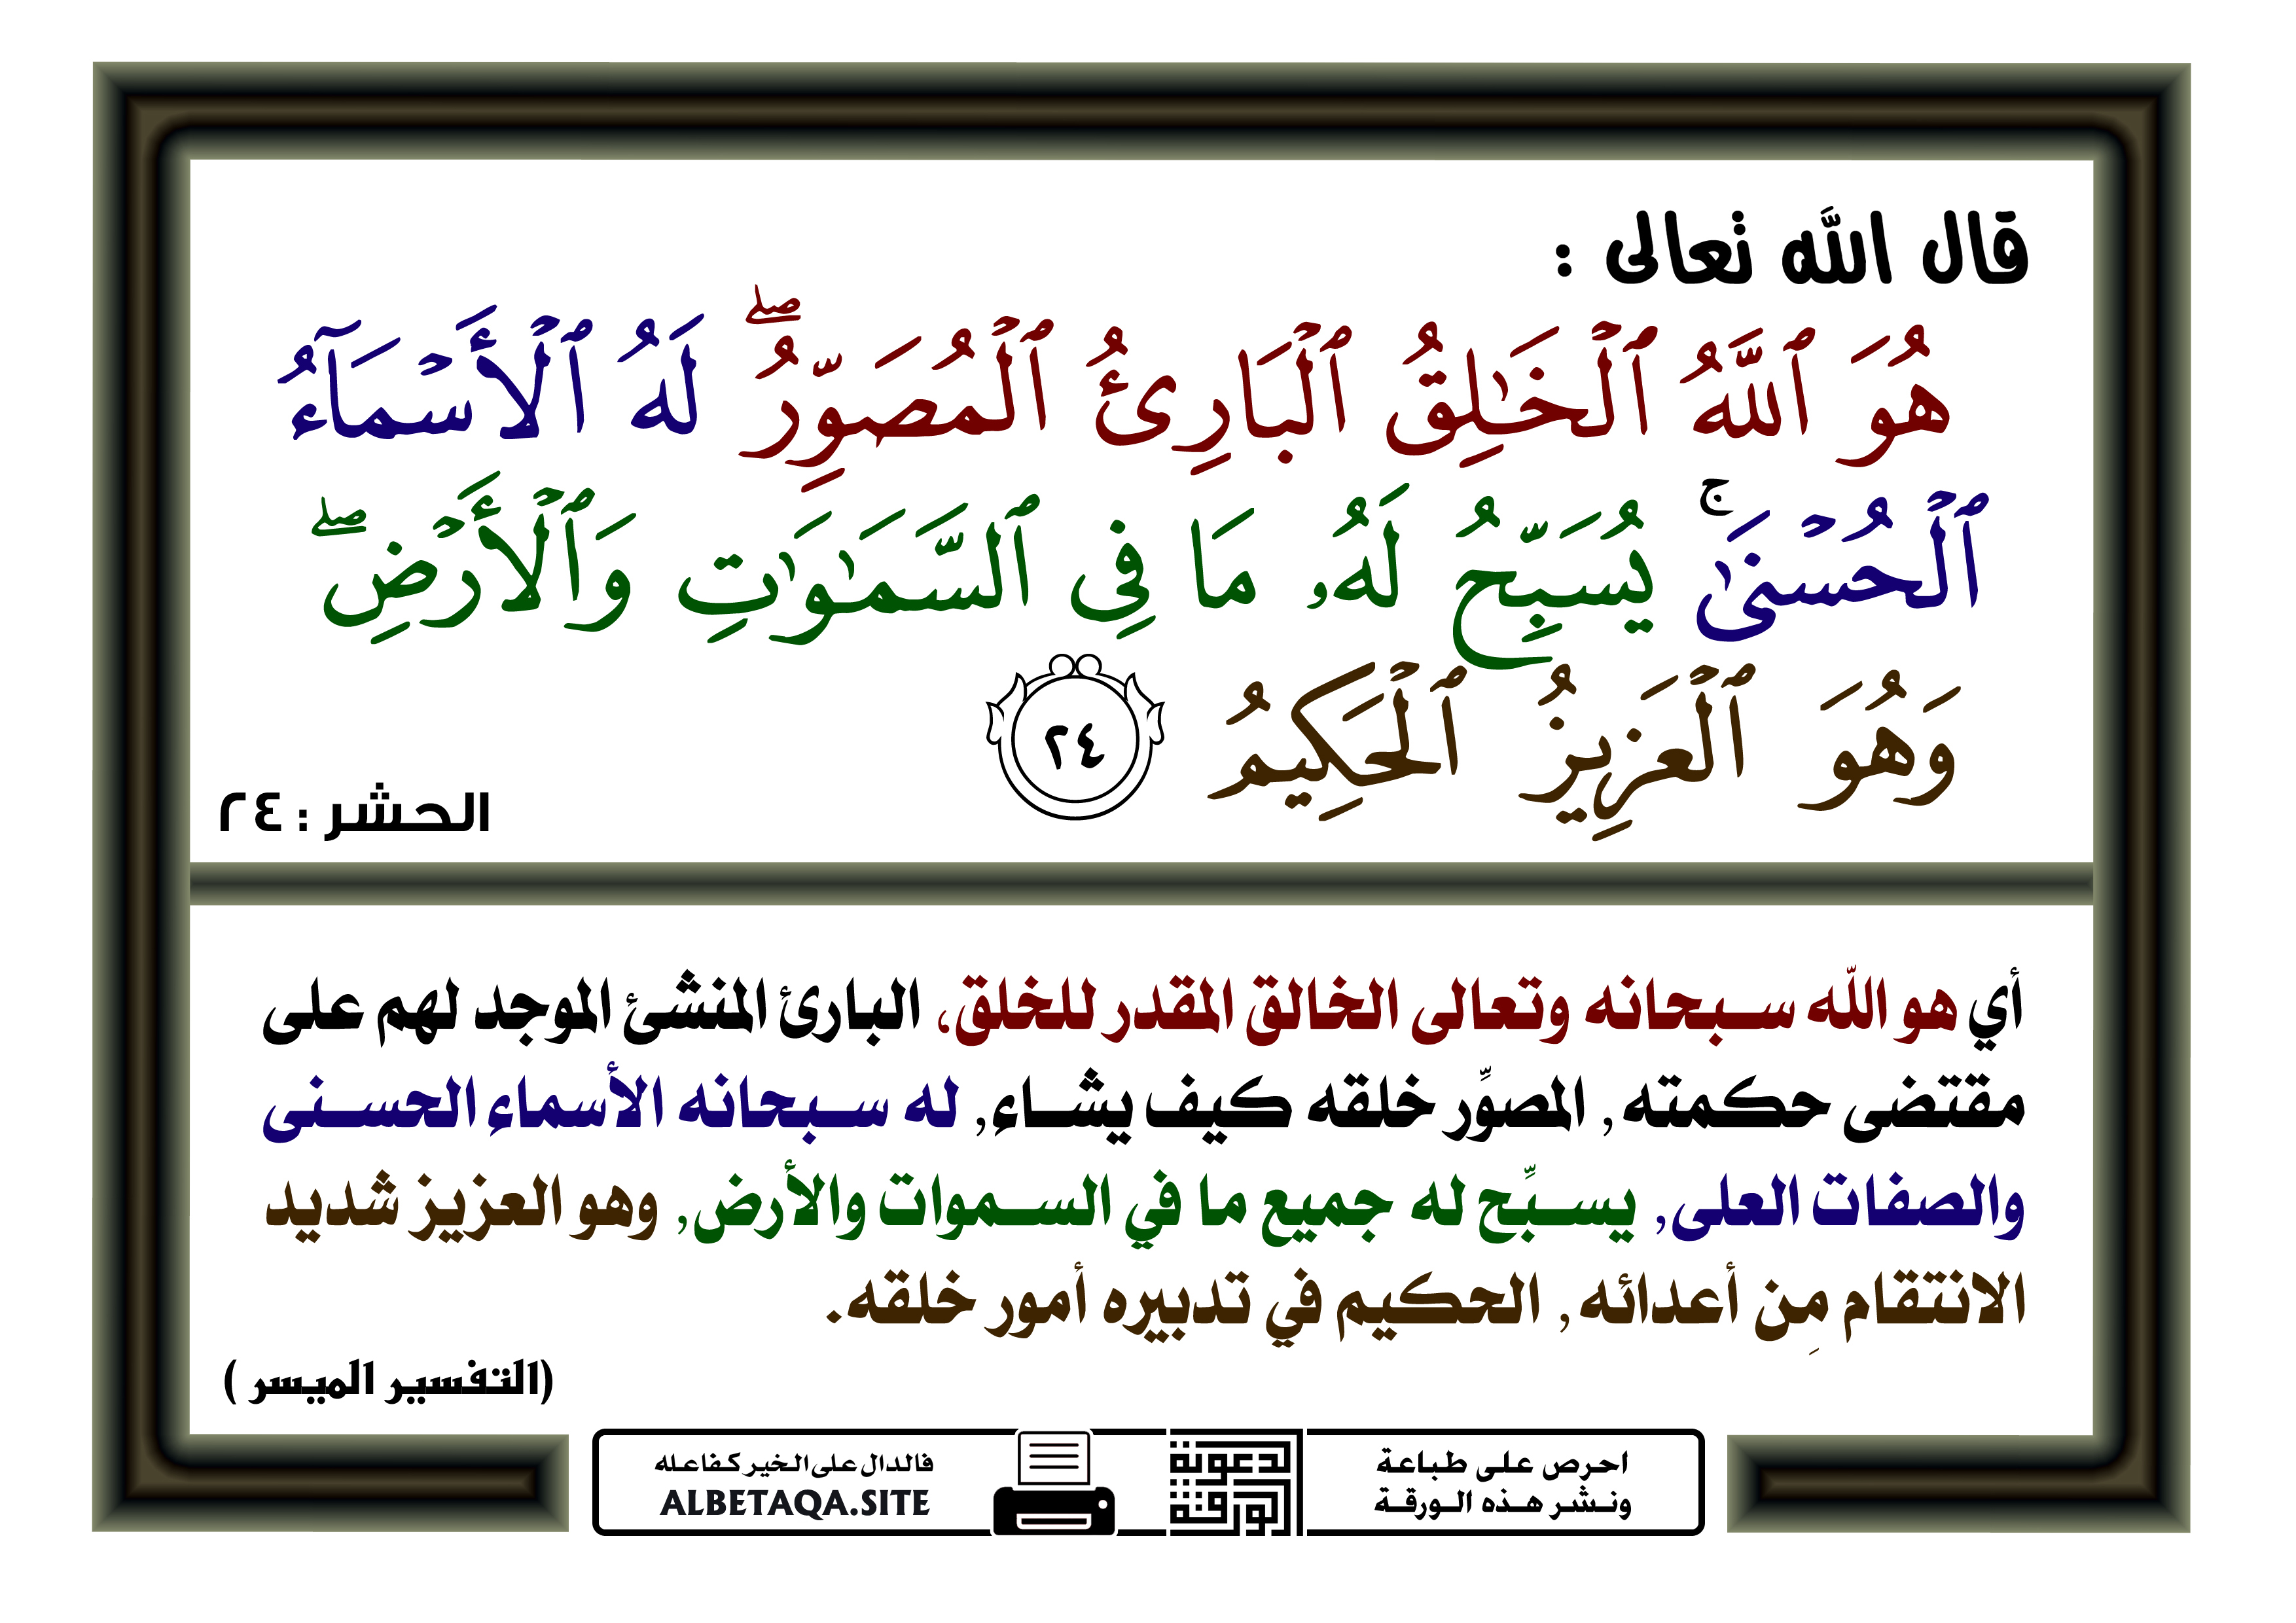 قال الله تعالى :
هُوَ ٱللَّهُ ٱلۡخَٰلِقُ ٱلۡبَارِئُ ٱلۡمُصَوِّرُۖ لَهُ ٱلۡأَسۡمَآءُ
ٱلۡحُسۡنَىٰۚ يُسَبِّحُ لَهُۥ مَا فِي ٱلسَّمَٰوَٰتِ وَٱلۡأَرۡضِۖ
وَهُوَ ٱلۡعَزِيزُ ٱلۡحَكِيمُ ٢٤
الحشر : ٢٤
أي هو الله سبحانه وتعالى الخالق المقدر للخلق، البارئ المنشئ الموجد لهم على
مقتضى حكمته, المصوِّر خلقه كيف يشاء, له سبحانه الأسماء الحسنى
والصفات العلى, يسبِّح له جميع ما في السموات والأرض, وهو العزيز شديد
الانتقام مِن أعدائه, الحكيم في تدبيره أمور خلقه.
(التفسير الميسر )
احرص على طباعة
ونشر هذه الورقة
الورقة
الدعوية
فالدال على الخير كفاعله
ALBETAQA.SITE